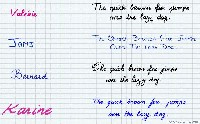 Valérie
The quick brown fox jumps
over the lazy dog.
Joris
The Quick Brown Fox Jumps
Over The Lazy Dog
Bernard
The quick brown fox jumps
over the lazy dog
Karine
The quick brown fox jumps
over the lazy dog.